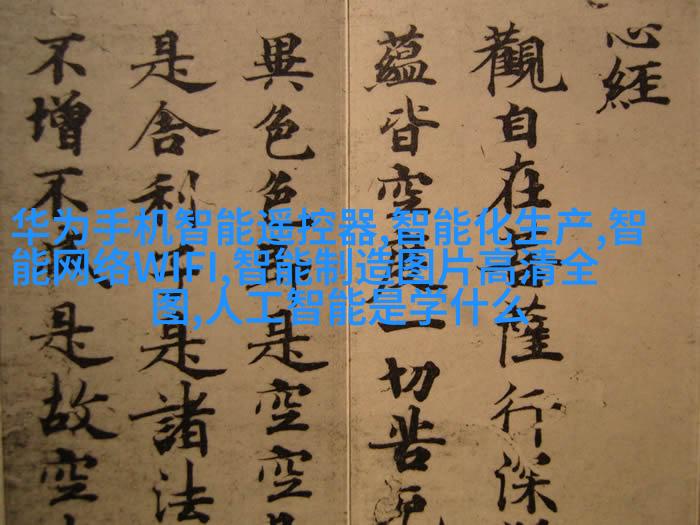 心經
觀自在菩薩行深
蘊皆空度一切苦厄
異色色即是空空
是舍利子是諸法
不增不減是故空
华为手机智能遥控器,智能化生产,智
能网络WIFI,智能制造图片高清全
图,人工智能是学什么